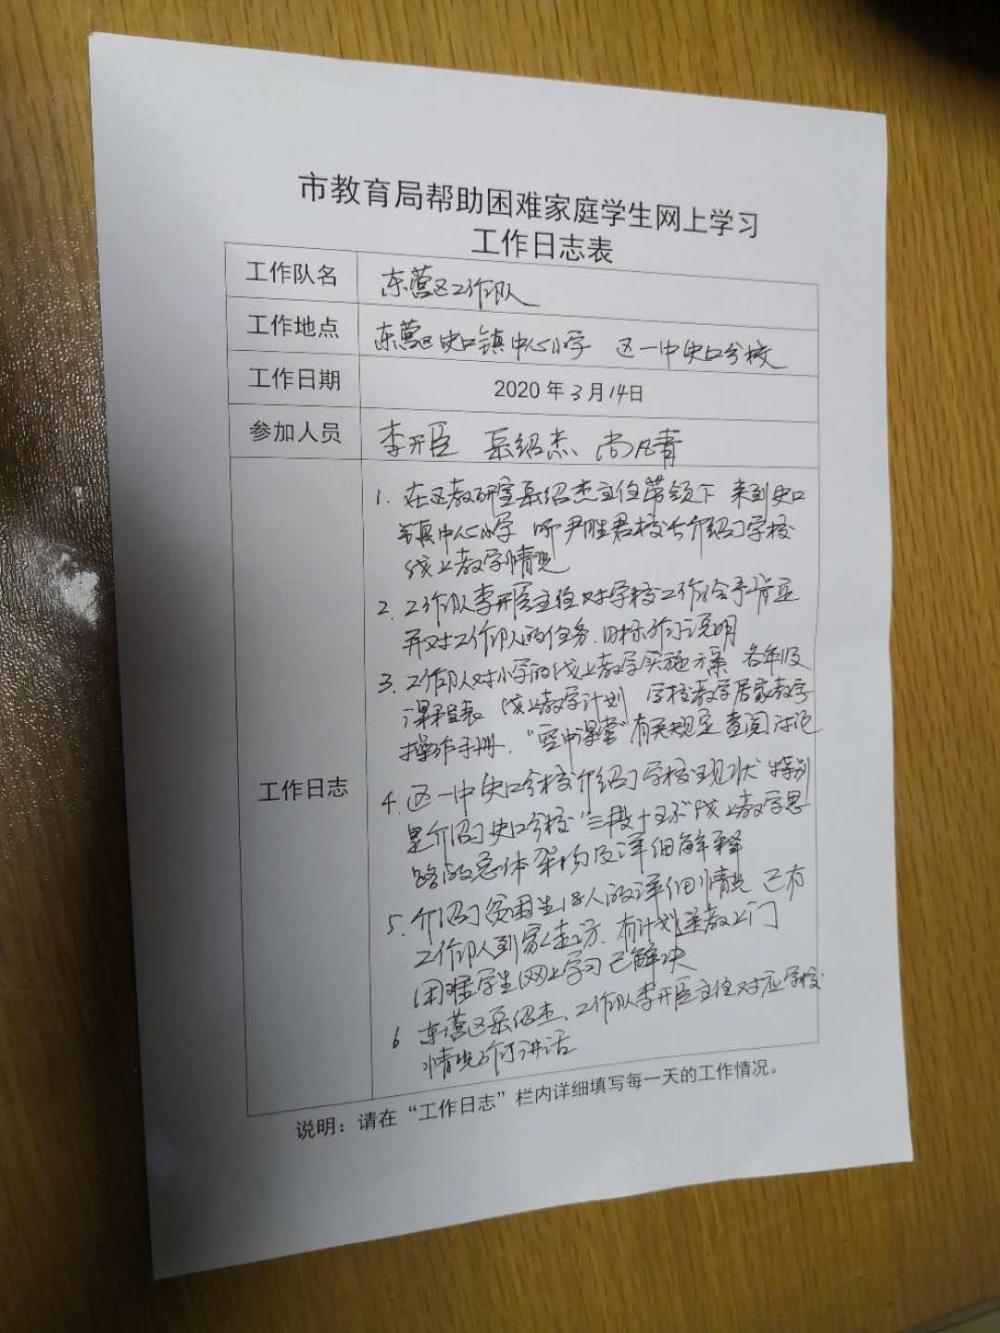 市教育局帮助困难家庭学生网上学习
工作日志表
工作队名 东营区工作队
工作地点 东营区史口镇中心小学 区一中史口分校
工作日期 2020年3月14日
参加人员 李开臣 绍杰、尚凡青
工作日志
1. 在区教研室 绍杰主任带领下 来到史口
镇中心小学 听尹胜君校长介绍了学校
线上教学情况
2. 工作队李开臣主任对学校工作给予肯定
并对工作队的任务、目标作了说明
3. 工作队对小学的线上教学实施方案 各年级
课程表 线上教学计划 学校教学居家教学
操作手册、“空中课堂”有关规定 查阅讨论
4. 区一中史口分校介绍了学校现状 特别
是介绍了史口分校“三段十环”线上教学思
路的总体架构及详细解释
5. 介绍了贫困生18人的详细情况 已有
工作队到家走访、有计划送教上门
困难学生网上学习已解决
6 东营区 绍杰、工作队李开臣主任对应学校
情况作了讲话
说明：请在“工作日志”栏内详细填写每一天的工作情况。